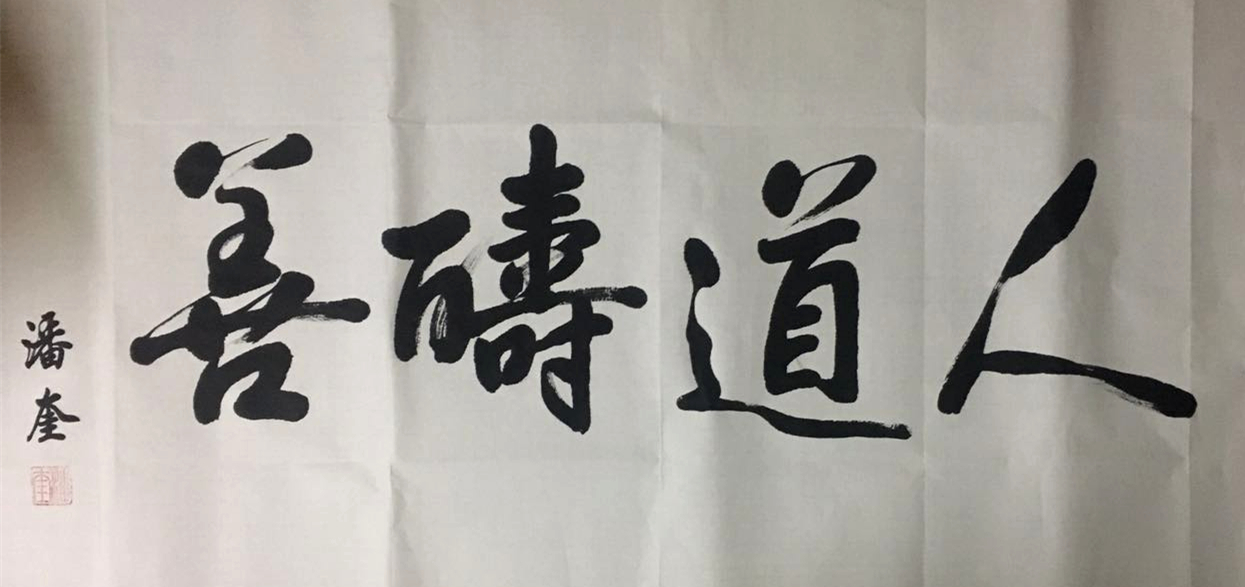 人道醻善
潘奎